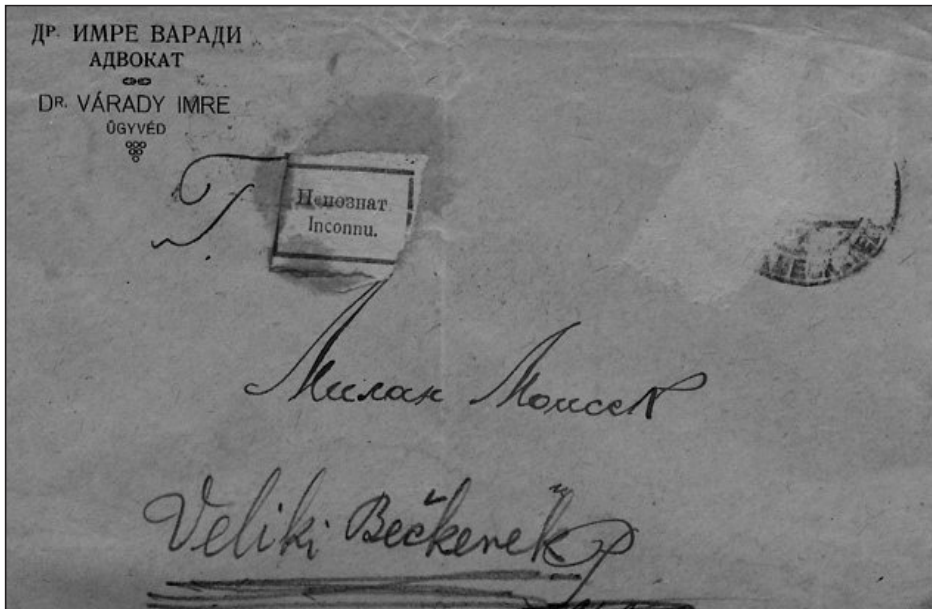 Др. ИМРЕ ВАРАДИ
АДВОКАТ
Dr. VÁRADY IMRE
ÜGYVÉD
Г.
Непознат
Inconnu.
Милан
Veliki Bečkerek